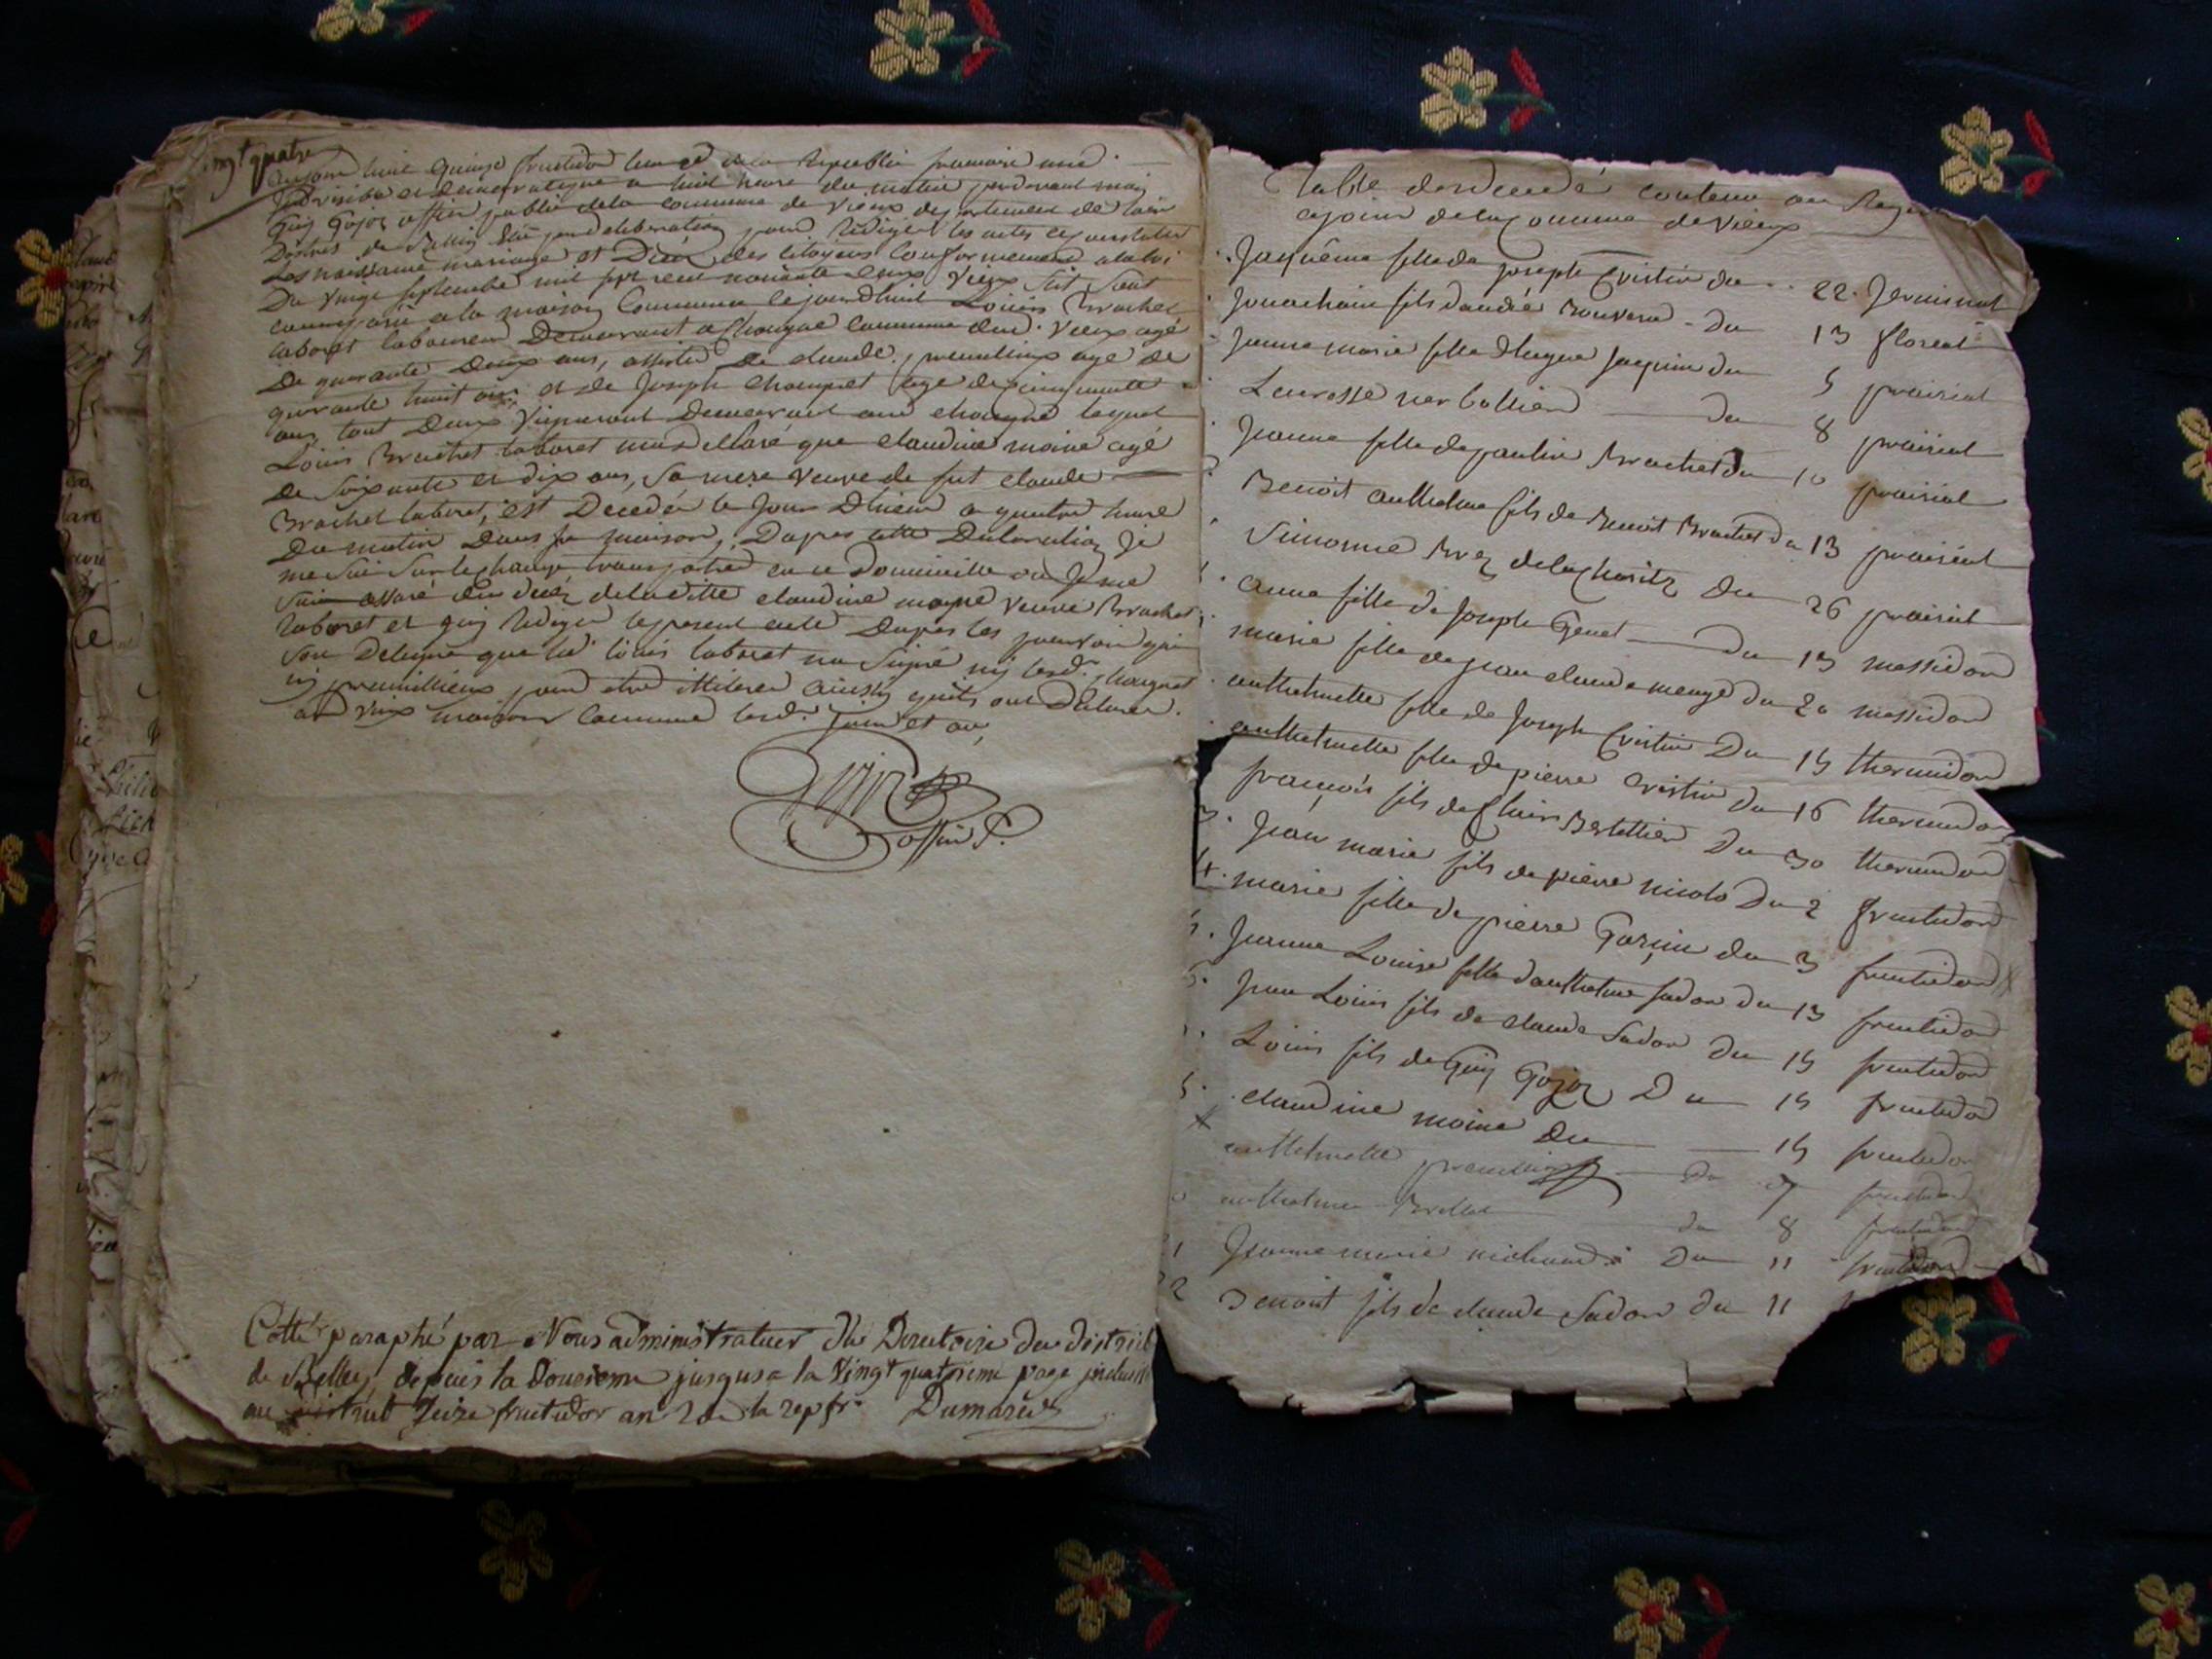 vingt quatre
aujourdhuit quinze fructidor lan 2d de la Republic francaise une
indivisible et democratique a huit heure du matin pardevant moy
Guy Gojoz officier public de la commune de Vieux departement de lain
District de Belley elu par deliberation pour Rediger les actes et constater
Les naissance mariage et Décés des citoyens Conformement ala loi
Du vingt septembre mil sept cent nonante deux vieux stil sont
comparu a la maison Commune cejourdhuit Loüis Brachet
laboret laboureur Demeurant a Chougne commune dud. Vieux agé
De quarante Deux ans, assisté De claude premillieux agé de
quarante huit ans et de Joseph chougnet agé de cinquante
ans tout Deux Vigneront Demeurant aud chougne lequel
Loüis Brachet laboret mas dellaré que claudine moine agé
De soixante et dix ans, sa mere veuve de fut claude
Brachet laboret, est Decedée le Jour Dhieur a quatre heure
Du matin Dans sa maison, Dapres cette Declaration Je
me sui sur le champ transporté en ce Domicille ou Je me
suis assuré du decéz de laditte claudine moyne veuve Brachet
laboret et J'aij Rédigé le present acte Dapres les pouvoir qui
son delegué que led. loüis laboret na signé nij lesd. chougnet
nij premillieux pour etre illiteré ainsy quils ont Declaré.
aud vieux maison Commune lesd. Jour et an,
Gojoz
offiié P.
Cotté paraphé par Nous administrateur du Directoire du district
de Belley depuis la douzieme jusqu'a la vingt quatrieme page inclusi
au district Seize fructidor an 2 de la rep fr. Dumarest
Table des decedé contenu au Regi
cejoint de la Commune de Vieux
fille de Joseph Cristin du 22 Jerminal
fils dandré Bouvard du 13 floreal
Jeanne marie fille d'hugue Jaquin du 5 prairial
du 8 prairial
Jeanne fille de pantin Brachet du 10 prairial
Benoit anthelme fils de Benoit Brachet du 13 prairial
Simonne Brez de la Charitz Du 26 prairial
anna fille de Joseph Genet du 13 messidor
marie fille de jean claude menge du 20 messidor
anthelmette fille de Joseph Cristin Du 15 thermidor
anthelmette fille de pierre Cristin du 16 thermidor
françois fils de Bertellier Du 30 thermidor
3. Jean marie fils de pierre nicolo Du 2 fructidor
4. marie fille de pierre Garjin du 3 fructidor
5. Jeanne Louise fille danthelme Sudon du 13 fructidor
6. Jean Loüis fils de claude Sudon Du 15 fructidor
Loüis fils de Guy Gojoz Du 15 fructidor
claudine moine Du 15 fructidor
anthelmette premillieux du 7 fructidor
anthelme Brillat du 8 fructidor
21 Jeanne marie michaud Du 11 fructidor
22 Benoit fils de claude Sudon du 11